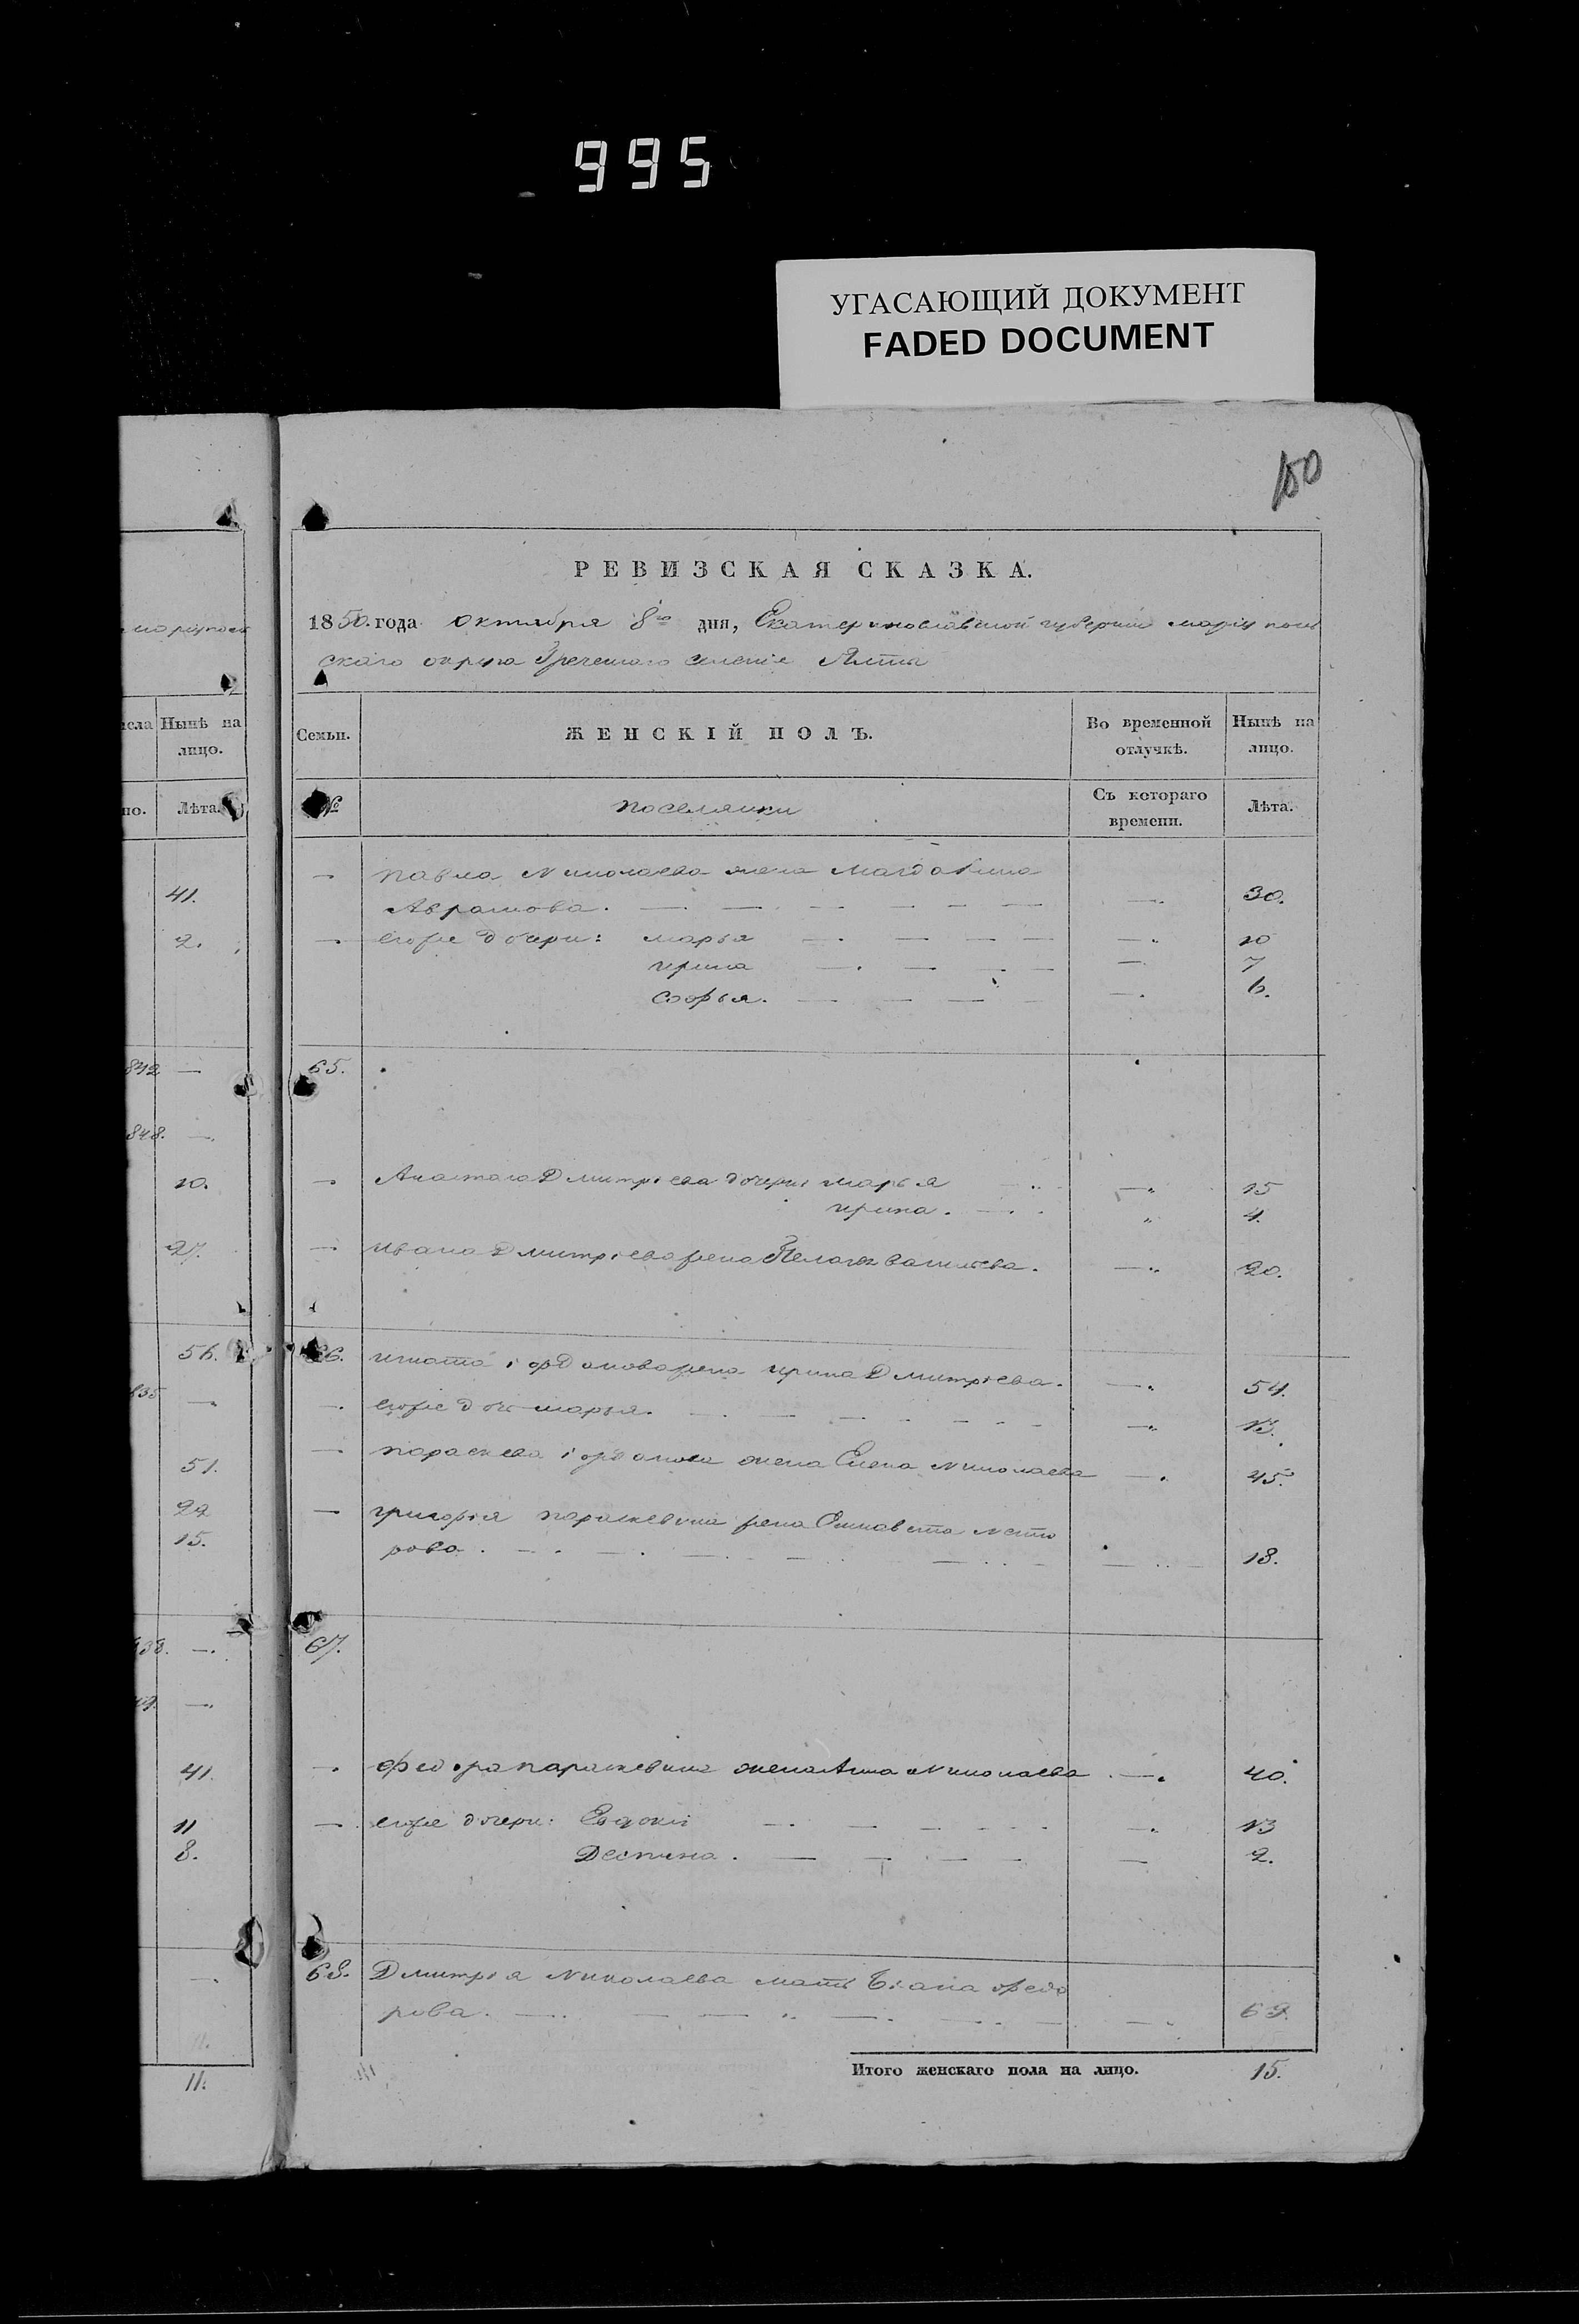 995
УГАСАЮЩИЙ ДОКУМЕНТ
FADED DOCUMENT
150
РЕВИЗСКАЯ СКАЗКА.
1850. года октября 8го дня, Екатеринославской губернии мариупол
скаго округа Греческаго селенiе Ялты
исла Нынѣ на лицо.
Семьи. ЖЕНСКІЙ ПОЛЪ. Во временной отлучкѣ. Нынѣ на лицо.
но. Лѣта.
№ поселянки Съ котораго времени. Лѣта.
— Павла Николаева жена Магдалина
41.
Аврамова. — 30.
2.
— его же дочери: марья — 10
ирина — 7
Софья. — 6.
842 —
65.
848. —
10.
— Анастаса Дмитрiева дочери марья — 15
ирина. — 4.
27.
— ивана Дмитрiева жена Пелагея Васильева. — 20.
56.
66. игната iорданова жена ирина Дмитрiева. — 54.
835 —
— его же дочь марья. — 13.
51.
— параскева iорданова жена Елена Николаева — 45.
22
— григорiя параскевина жена Елисавета Несто
15.
рова. — 18.
838. —
67.
49. —
41.
— Федора параскевина жена Анна Николаева. — 40.
11
— его же дочери: Евдокiя — 13
8.
Деспина. — 2.
68. Дмитрiя Николаева мать Федо
рова. — 69.
11.
Итого женскаго пола на лицо. 15.